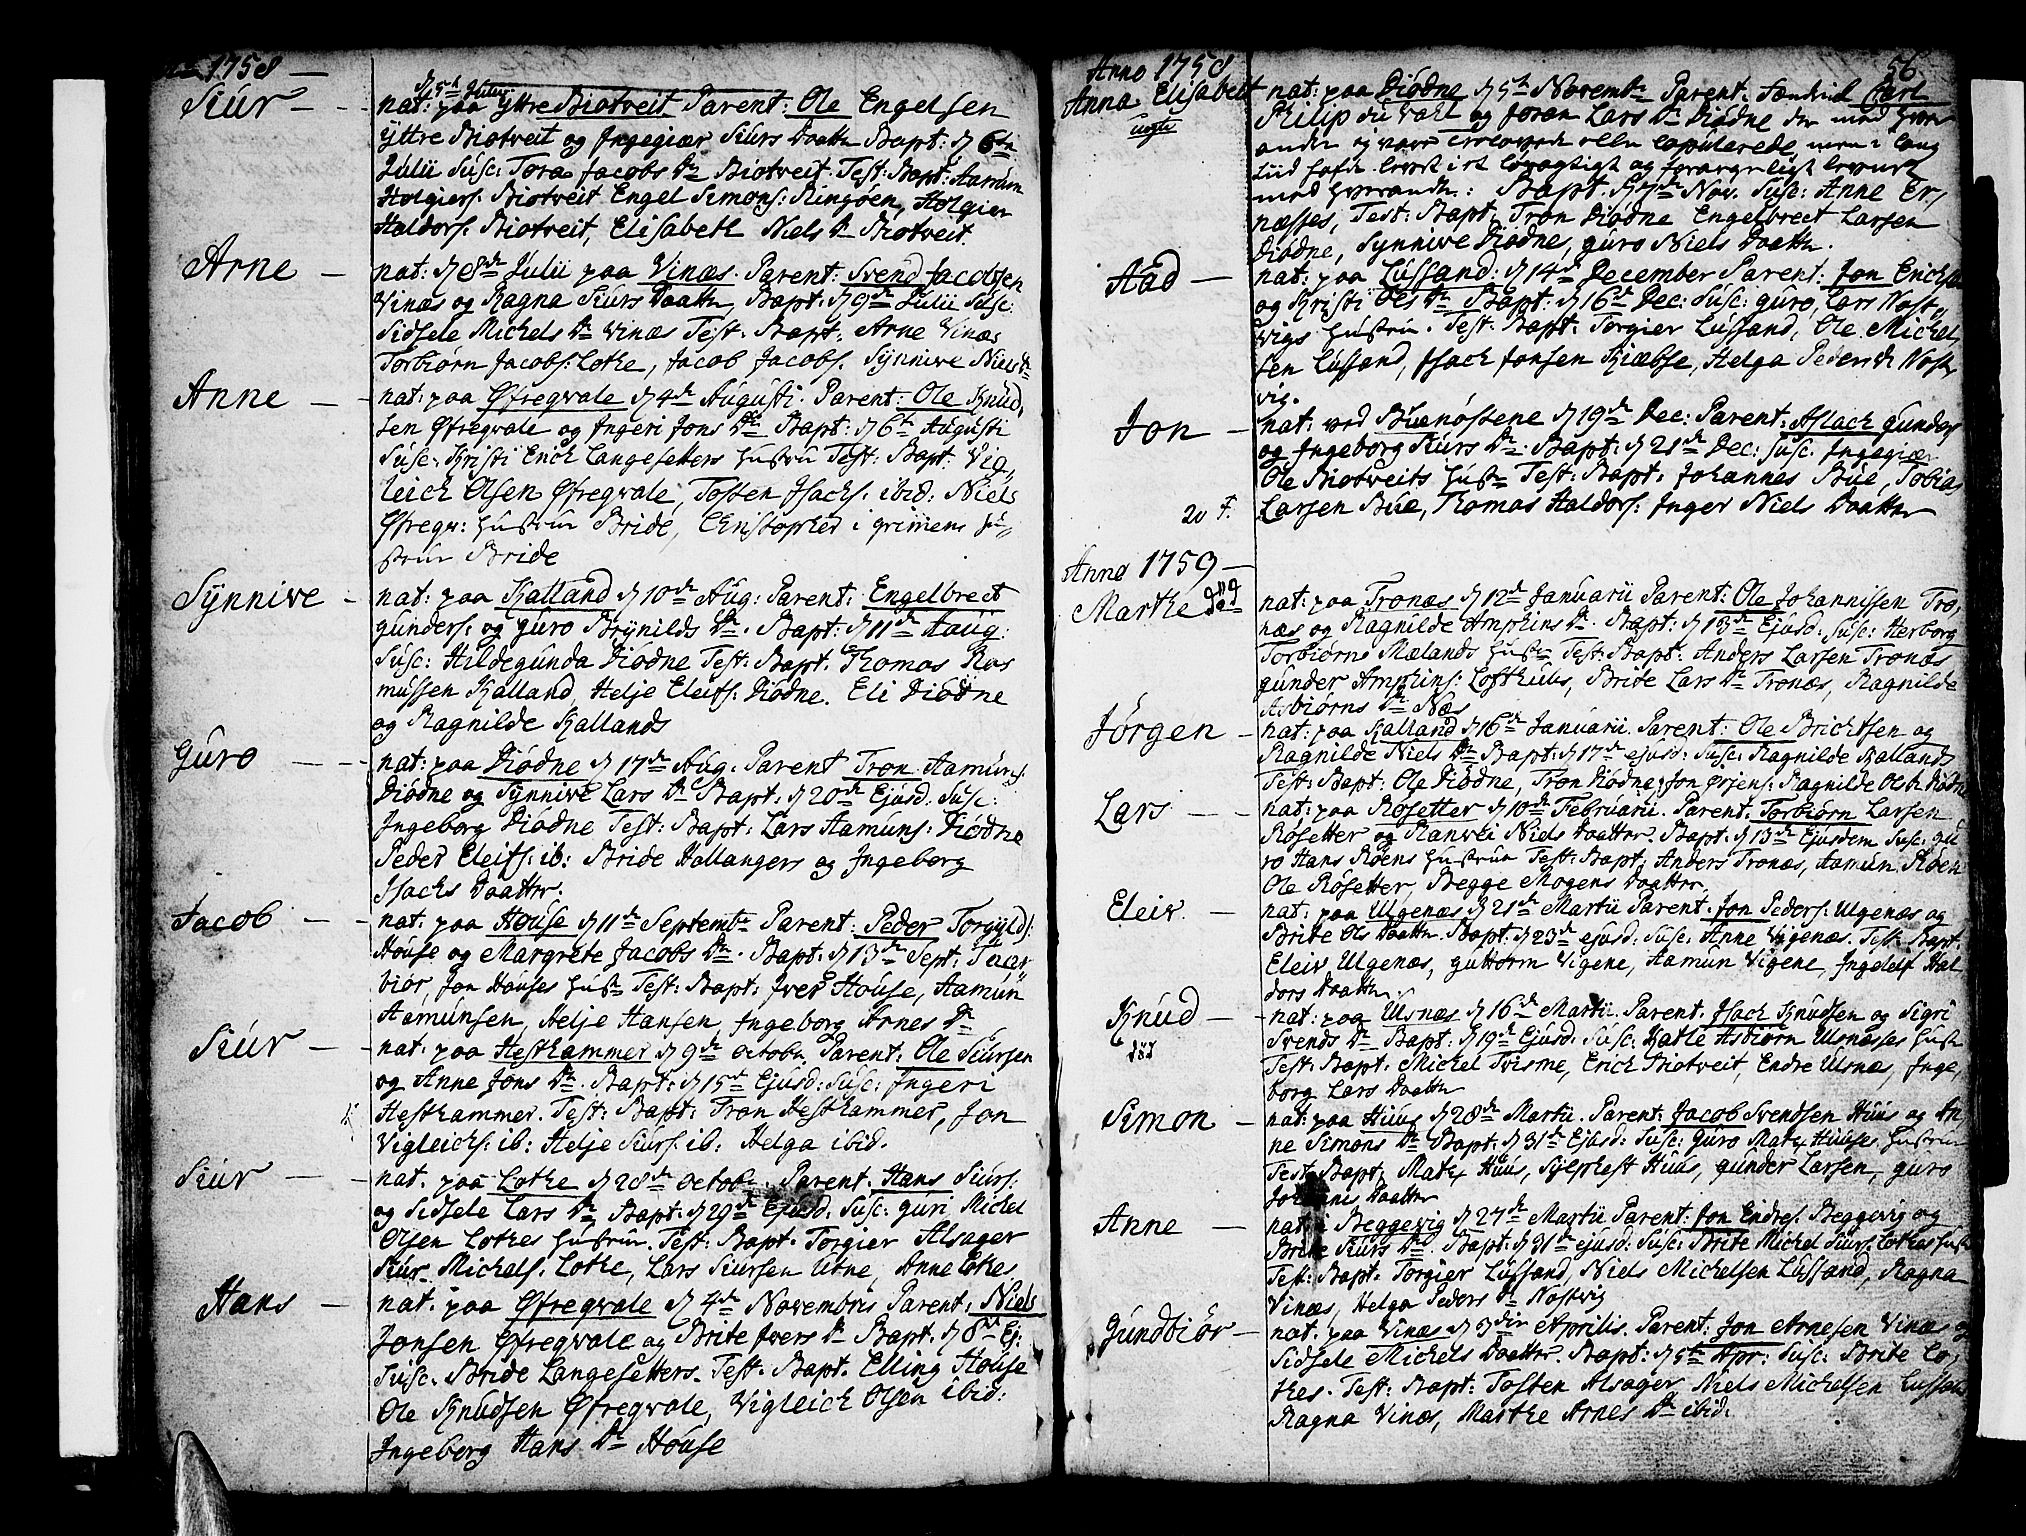 1758
Siur nat: paa Yttre Biotveit Parent: Ole Engelsen
d 5te Julii
Yttre Biotveit og Ingegiær Siurs Daatter Bapt: d 6te
Julii Susc: Tora Jacobs Dr Biotveit. Test: Bapt: Aamun
Holgiers: Biotveit Engel Simons: Ringöen, Holgier
Haldors: Biotveit, Elisabeth Niels Dr Biotveit.
Arne nat: d 8de Julii paa Vinæs. Parent: Svend Jacobsen
Vinæs og Ragna Siurs Daatter, Bapt: d 9de Julii Susc:
Sidsele Michels Dr Vinæs Test: Bapt: Arne Vinæs
Torbiørn Jacobs: Lothe, Jacob Jacobs. Synnive Niels Dr
Anne nat: paa Øfregvale d 4de Augusti. Parent: Ole Knud,
sen Øfregvale og Ingeri Jons Dr Bapt: d 6te Augusti
Susc: Kristi Erich Langesetters Hustru Test: Bapt: Vig,
leich Olsen Øfregvale, Tosten Isachs: ibid: Niels
Øfregv: Hustrue Bride, Christopher i grimens Hu-
strue Bride
Synnive nat: paa Kalland d 10de Aug: Parent: Engelbrect
gunders: og Guro Brynilds Dr. Bapt: d 11de Aug:
Susc: Hildegunda Diödne Test: Bapt. Thomas Ras
mussen Kalland, Helje Eleifs: Diödne. Eli Diödne
og Ragnilde Kallands
Guro nat: paa Diödne d 17de Aug. Parent Tron Aamuns:
Diödne og Synnive Lars Dr Bapt: d 20de Ejusd: Susc:
Ingeborg Diödne Test: Bapt: Lars Aamuns: Diödne
Peder Eleifs: ib: Bride Hallangers og Ingeborg
Isachs Daatter.
Jacob nat: paa House d 11de Septembr Parent: Peder Torgylds:
House og Margrete Jacobs Dr. Bapt: d 13de Sept:
biör, Jon Houses Hustr Test: Bapt: Iver House, Aamun
Aamunsen, Helje Hansen, Ingeborg Arnes Dr
Siur nat: paa Hesthammer d 9de Octobr Parent: Ole Siursen
og Anne Jons Dr. Bapt: d 15de Ejusd: Susc: Ingeri
Hesthammer. Test: Bapt: Tron Hesthammer, Jon
Vigleichs: ib: Helje Siurs: ib: Helga ibid.
Siur nat: paa Lothe d 28de Octobr. Parent: Hans Siurs:
og Sidsele Lars Dr Bapt: d 29de Ejusd. Susc: Guri Michel
Olsen Lothes Hustrue. Test: Bapt. Torgier Alsager
Siur Michels: Lothe, Lars Siursen Utne, Anne Lothes
Hans nat: paa Øfregvale d 4de Novembris Parent: Niels
Jonsen Øfregvale og Brite Ivers Dr Bapt. d 8de Ej:
Susc. Bride Langesetters. Test: Bapt. Elling House
Ole Knudsen Øfregvale, Vigleich Olsen ibid:
Ingeborg Hans Dr House
Anno 1758 56
Anna Elisabet nat: paa Diödne d 5te Novembr Parent: Carl
uægte
Philip du Vahl og Joran Lars Dr Diödne der med hver
andre ej vare trolovede eller copulerede men i lang
tiid hafde levet i et og forargerligt levnet
med hverandre: Bapt. Nov. Susc: Anne Er,
næsses, Test: Bapt: Tron Diödne Engelbrect Larsen
Diödne, Synnive Diödnes, Guro Niels Daatter.
Aad nat: paa Lussand: d 14de December Parent: Jon Erichsen
og Kristi Ols Dr Bapt: d 16de Dec: Susc: Guro, Lars Nost,
vigs Hustrue. Test: Bapt: Torgier Lussand, Ole Michel,
sen Lussand, Isach Jonsen Kiæbse, Helga Peders Dr Nost
vig.
Jon nat: ved Buenössene d 19de Dec: Parent: Aslach Gunders
og Ingeborg Siurs Dr. Bapt: d 21de Dec: Susc. Ingegiær
Ole Biotveits Hustr Test: Bapt: Johannes Bue, Tobias
20 F. Larsen Bue, Thomas Haldors: Inger Niels Daatter
Anno 1759
Marthe död nat: paa Tronæs d 12de Januarii Parent: Ole Johannissen Tro,
næs og Ragnilde Ampkins Dr. Bapt: d 13de Ejusd: Susc: Herborg
Torbiørns Mælands Hustr Test: Bapt: Anders Larsen Tronæs
Gunder Ampkins: Lofthuus, Brite Lars Dr Tronæs, Ragnilde
Asbiørns Dr Næs
Jörgen nat: paa Kalland d 16de Januarii Parent: Ole Brichtsen og
Ragnilde Niels Dr Bapt: d 17de ejusd: Susc: Ragnilde Kallands
Test: Bapt: Ole Diödne, Tron Diödne, Jon Ørjens: Ragnilde Ols Dr Diödne
Lars nat: paa Rosetter d 10de Februarii. Parent: Torbiørn Larsen
Rosetter og Ranvei Niels Daatter. Bapt: d 13de Ejusdem Susc: Gu
ro Hans Röens Hustrue Test: Bapt: Anders Tronæs, Aamun Röen
Ole Rösetter, Begge Mogens Daatter.
Eleiv nat: paa Ulgenæs d 21de Martii Parent: Jon Peders: Ulgenæs og
Brite Ols Daatter. Bapt: d 23de ejusd: Susc: Anne Vigenæs. Test: Bapt:
Eleiv Ulgenæs, Guttorm Vigene, Aamun Vigene, Ingelef Hal
dors Daatter.
Knud nat: paa Ulsnæs d 16de Martii. Parent. Isach Knudsen og Sigri
död
Svends Dr Bapt: d 19de Ejusd: Susc: Katle Asbiørn Ulsnæsses Hustr
Test: Bapt. Michel Tvisme, Erich Biotveit, Endre Ulsnæs, Inge,
borg Lars Daatter
Simon nat: paa Huus d 28de Martii. Parent: Jacob Svendsen Huus og An,
ne Simons Dr Bapt: d 31de Ejusd: Susc: Guro Mats Huuses Hustrue
Test: Bapt: Mats Huus, Sylfest Huus, Gunder Larsen, Guro
Johannis Daatter
Anne nat: i Beggevig d 27de Martii Parent: Jon Endres. Beggevig og
Brite Siurs Dr. Bapt: d 31de ejusd: Susc: Brite Michel Siurs: Lothes Hustr
Test: Bapt: Torgier Lussand, Niels Michelsen Lussand, Ragna
Vinæs, Helga Peders Dr Nostvig
Gundbiör nat: paa Vinæs d 3die Aprilis. Parent: Jon Arnesen Vinæs og
Sidsele Michels Daatter. Bapt: d 5te Apr: Susc: Brite Lo,
thes. Test: Bapt: Tosten Alsager Niels Michelsen Lussand
Ragna Vinæs, Marthe Arnes Dr ibid: